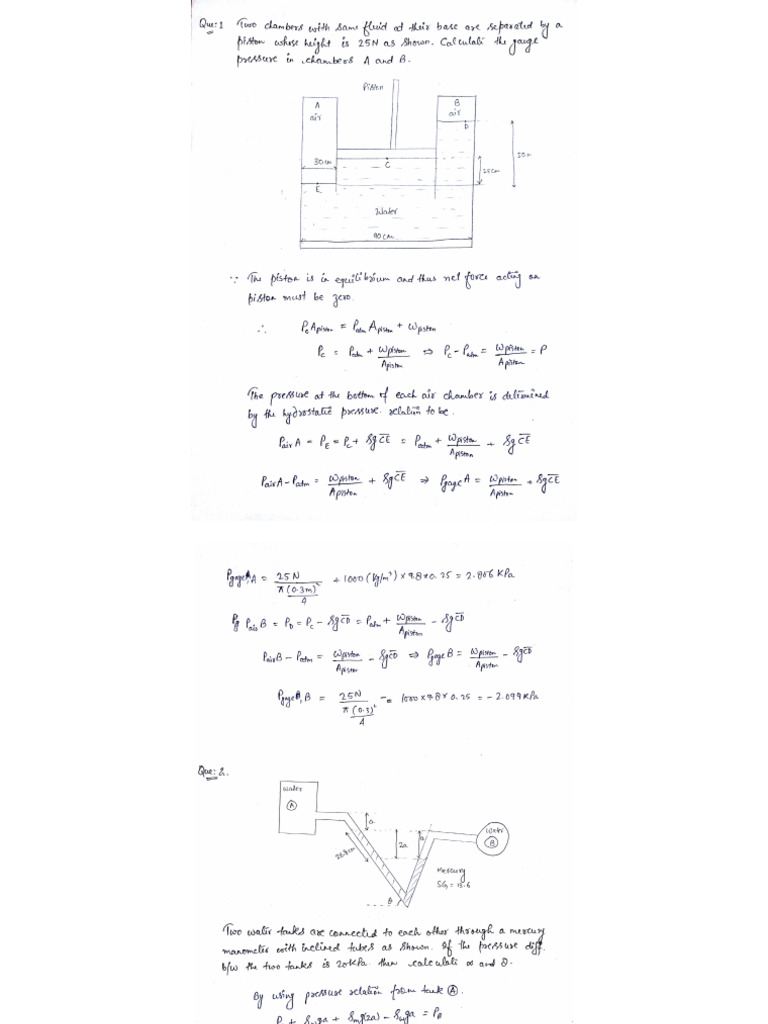 Que:1 Two chambers with same fluid at their base are separated by a
piston whose height is 25N as shown. Calculate the gauge
pressure in chambers A and B.
Piston
A
air
B
air
D
30cm
C
25cm
50cm
E
Water
90cm
∵ The piston is in equilibrium and thus net force acting on
piston must be zero.
∴ P_C A_piston = P_atm A_piston + W_piston
P_C = P_atm + W_piston/A_piston ⇒ P_C - P_atm = W_piston/A_piston = P
The pressure at the bottom of each air chamber is determined
by the hydrostatic pressure relation to be.
P_air A = P_E = P_C + ρg CE = P_atm + W_piston/A_piston + ρg CE
P_air A - P_atm = W_piston/A_piston + ρg CE ⇒ P_gage A = W_piston/A_piston + ρg CE
P_gage, A = 25N / (π(0.3m)²/4) + 1000 (kg/m³) × 9.8 × 0.25 = 2.806 KPa
P_air B = P_D = P_C - ρg CD = P_atm + W_piston/A_piston - ρg CD
P_air B - P_atm = W_piston/A_piston - ρg CD ⇒ P_gage B = W_piston/A_piston - ρg CD
P_gage, B = 25N / (π(0.3)²/4) - 1000 × 9.8 × 0.25 = - 2.099 KPa
Que: 2.
Water
A
a
2a
a
Water
B
26.8cm
Mercury
SG = 13.6
θ
Two water tanks are connected to each other through a mercury
manometer with inclined tubes as shown. If the pressure diff.
b/w the two tanks is 20 KPa. then calculate α and θ.
By using pressure relation from tank A.
P + ρ_w ga + ρ_m g(2a) - ρ_w ga = P_B